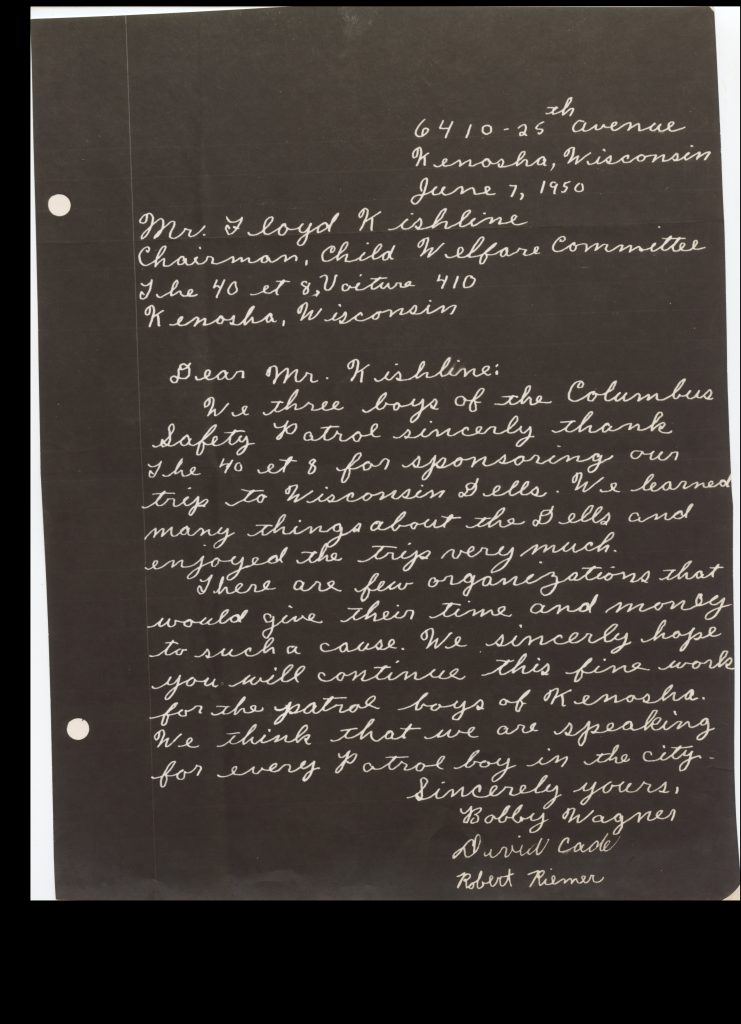 6410-25th avenue
Kenosha, Wisconsin
June 7, 1950
Mr. Floyd Kishline
Chairman, Child Welfare Committee
The 40 et 8, Voiture 410
Kenosha, Wisconsin
Dear Mr. Kishline:
We three boys of the Columbus
Safety Patrol sincerly thank
The 40 et 8 for sponsoring our
trip to Wisconsin Dells. We learned
many things about the Dells and
enjoyed the trip very much.
There are few organizations that
would give their time and money
to such a cause. We sincerly hope
you will continue this fine work
for the patrol boys of Kenosha.
We think that we are speaking
for every Patrol boy in the city.
Sincerely yours,
Bobby Wagner
David Cade
Robert Riemer